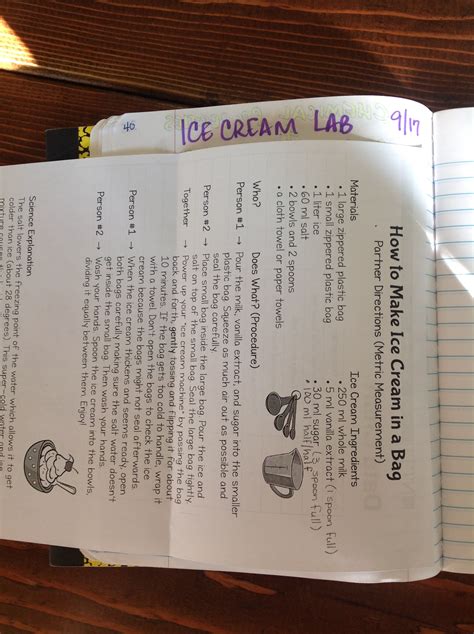 40
ICE CREAM LAB 9/17
How to Make Ice Cream in a Bag
Partner Directions (Metric Measurement)
Materials
• 1 large zippered plastic bag
• 1 small zippered plastic bag
• 1 liter ice
• 60 ml salt
• 2 bowls and 2 spoons
• a cloth towel or paper towels
Ice Cream Ingredients
• 250 ml whole milk
• 5 ml vanilla extract (1 spoon full)
• 30 ml sugar (3 spoon full)
• 100 ml half/half
Who? Does What? (Procedure)
Person #1 → Pour the milk, vanilla extract, and sugar into the smaller
plastic bag. Squeeze as much air out as possible and
seal the bag carefully.
Person #2 → Place small bag inside the large bag. Pour the ice and
salt on top of the small bag. Seal the large bag tightly.
Together → Power up your "ice cream machine" by passing the bag
back and forth, gently tossing and flipping it for about
10 minutes. If the bag gets too cold to handle, wrap it
with a towel. Don't open the bags to check the ice
cream because the bags might not seal afterwards.
Person #1 → When the ice cream thickens and seems ready, open
both bags carefully making sure the salt water doesn't
get inside the small bag. Then wash your hands.
Person #2 → Wash your hands. Spoon the ice cream into the bowls,
dividing it equally between them. Enjoy!
Science Explanation
The salt lowers the freezing point of the water which allows it to get
colder than ice (about 28 degrees). This super-cold water and ice
mixture causes